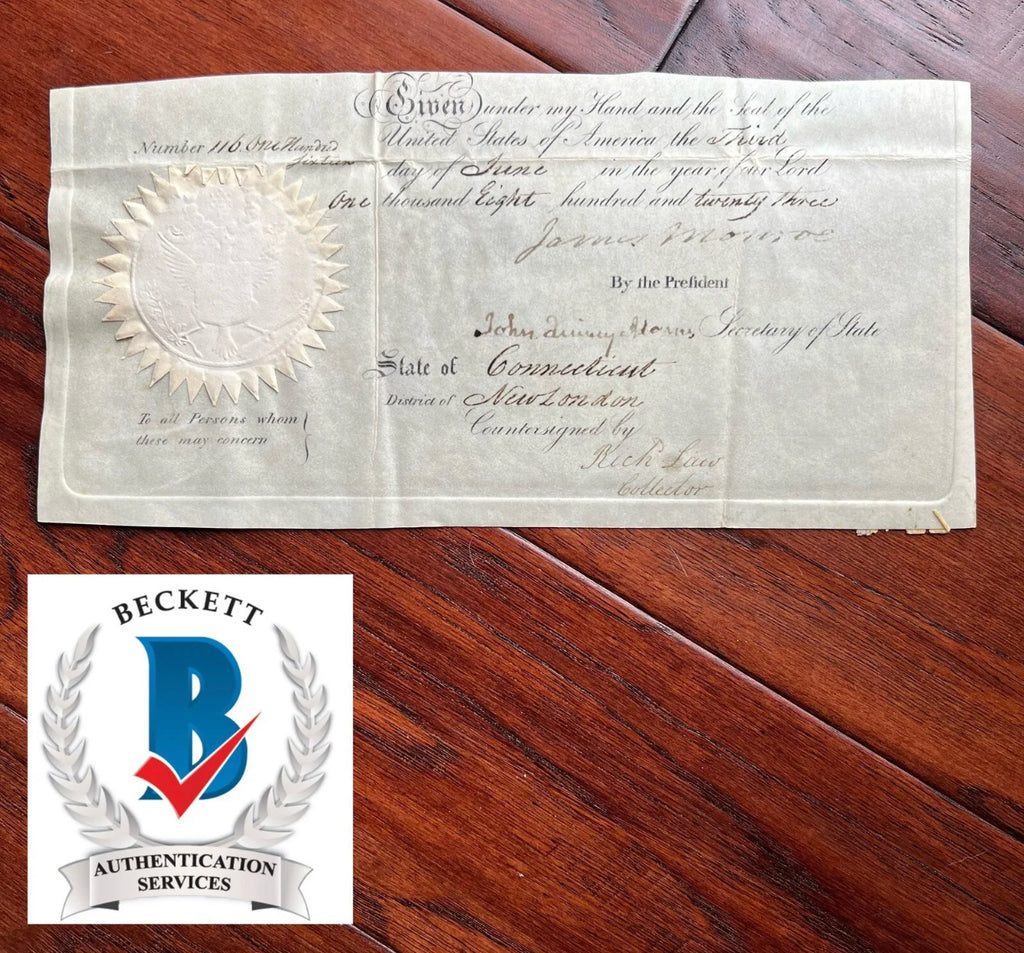 Given under my Hand and the Seal of the
United States of America, the Third
day of June in the year of our Lord
One thousand Eight hundred and twenty three
Number 116 One Hundred
Sixteen
James Monroe
By the Preſident
John Quincy Adams, Secretary of State
State of Connecticut
District of New London
Countersigned by
Rich Law
Collector
To all Persons whom
these may concern
BECKETT
B
AUTHENTICATION
SERVICES